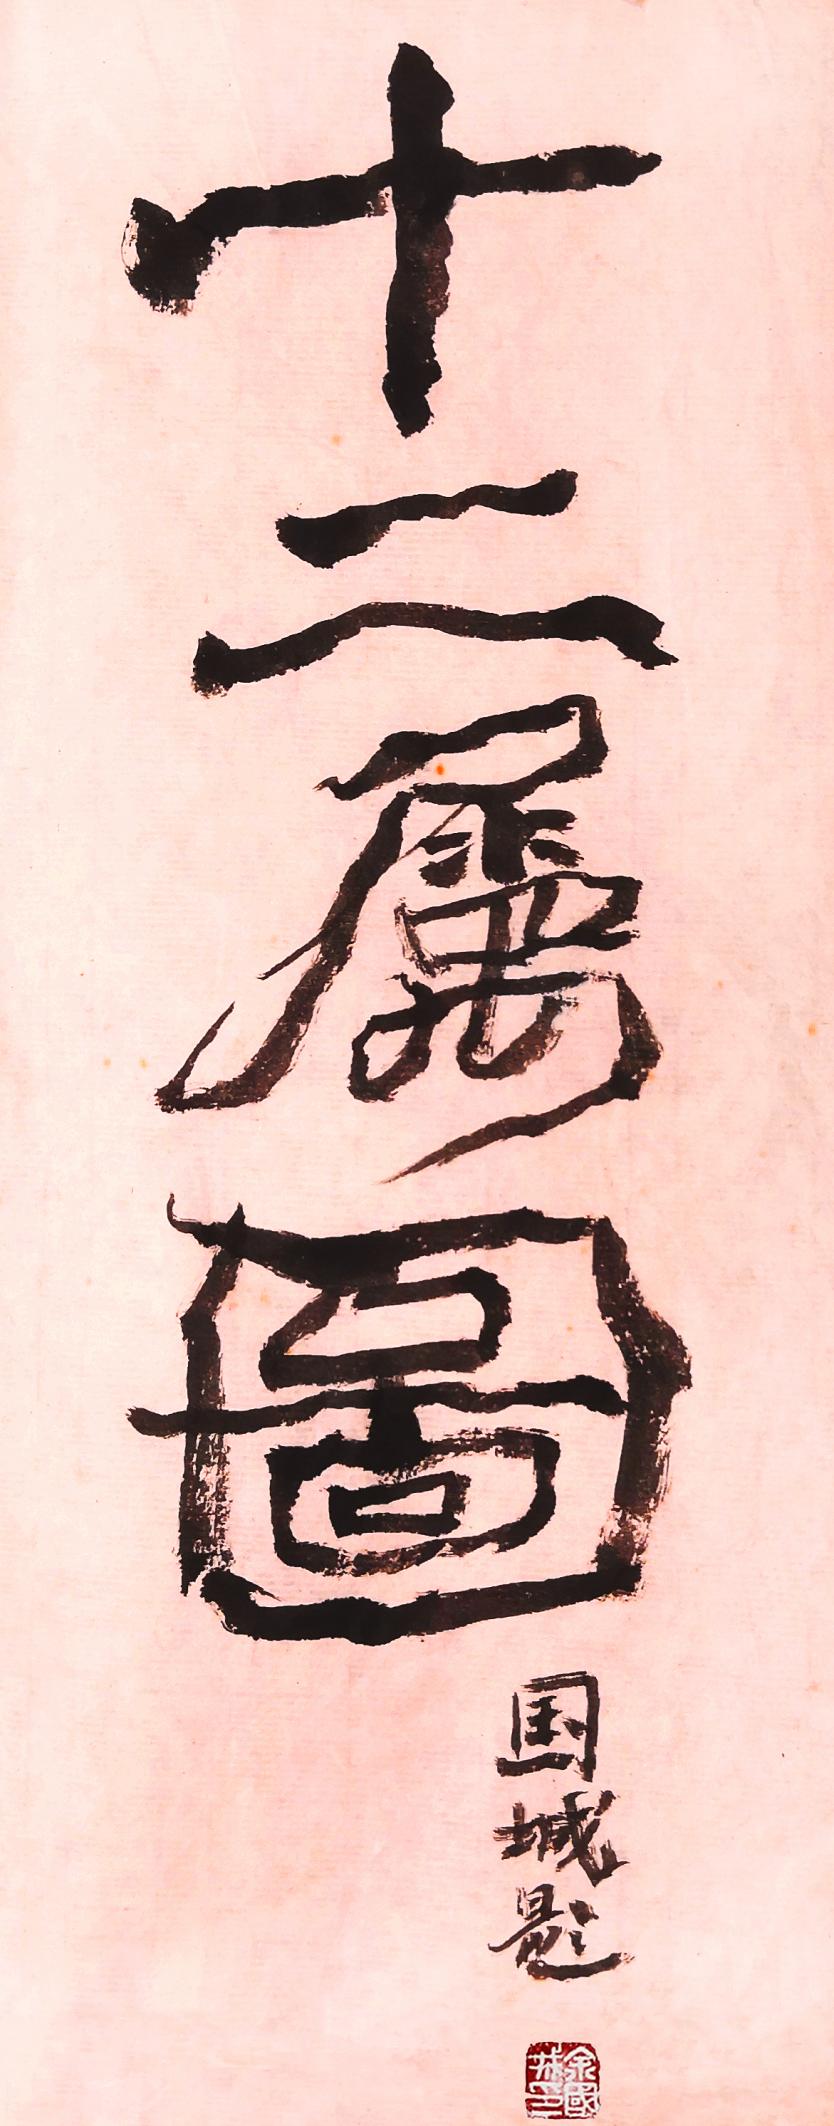 十二属圖
国城题
余國城印